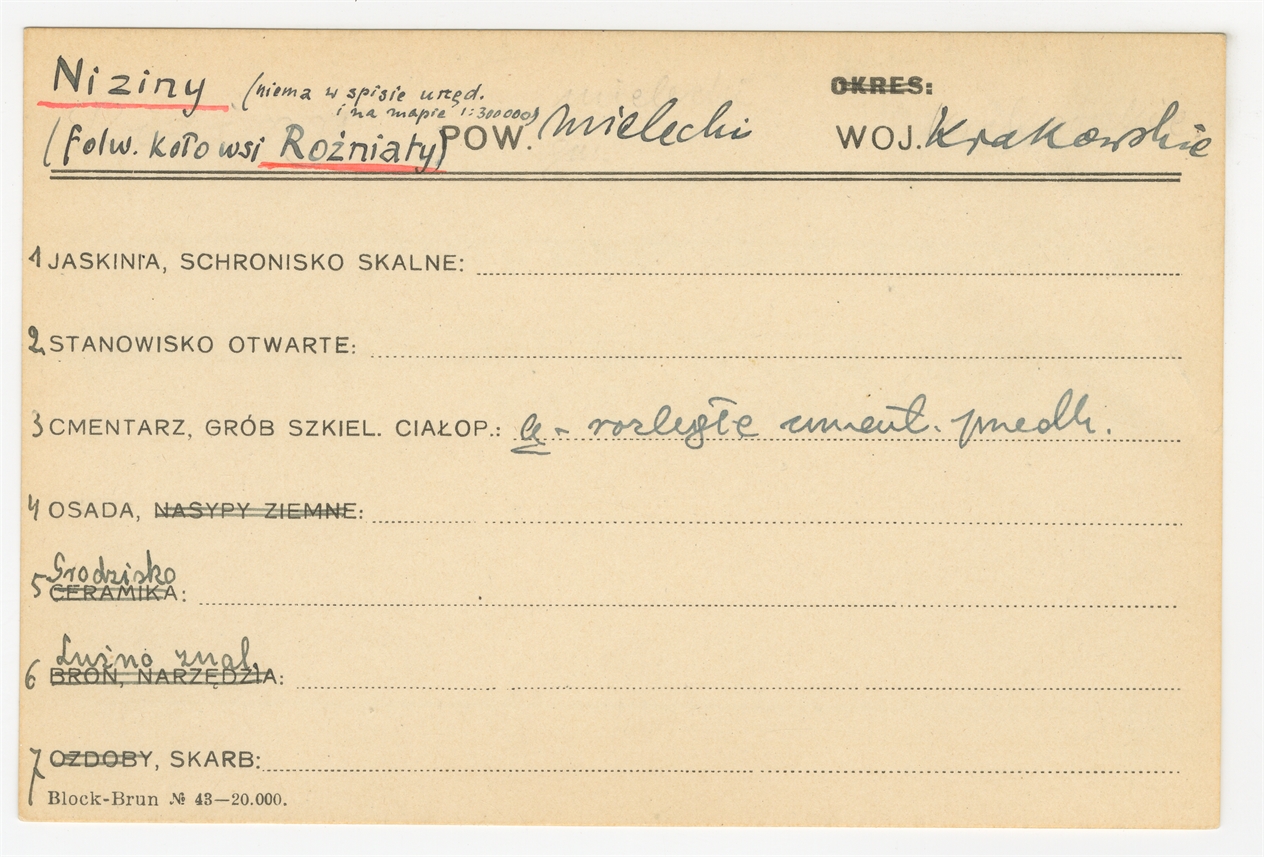 Niziny (niema w spisie urzęd.
i na mapie 1:300000)
OKRES:
(folw. koło wsi Rożniaty) POW. Mielecki WOJ. Krakowskie
1 JASKINIA, SCHRONISKO SKALNE:
2 STANOWISKO OTWARTE:
3 CMENTARZ, GRÓB SZKIEL. CIAŁOP.: a - rozległe cment. przedh.
4 OSADA, NASYPY ZIEMNE:
Grodzisko
5 CERAMIKA:
Luźno znal.
6 BROŃ, NARZĘDZIA:
7 OZDOBY, SKARB:
Block-Brun № 43—20.000.